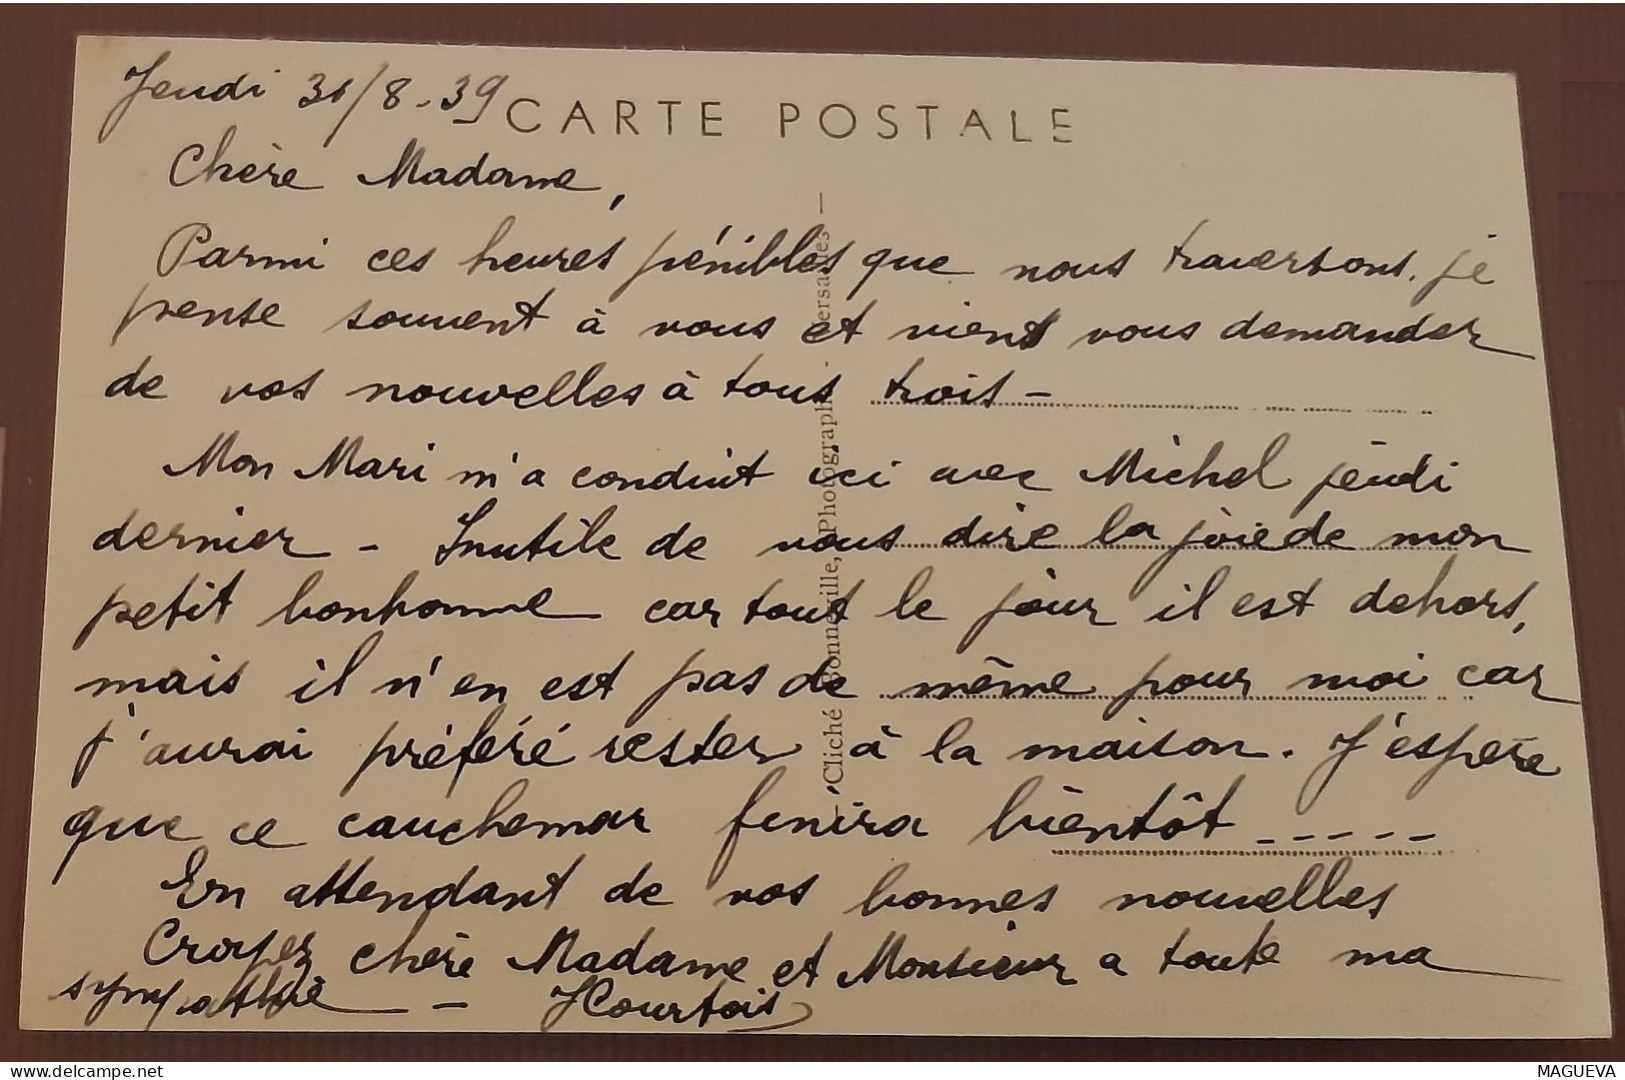 Jeudi 31/8-39
CARTE POSTALE
Chère Madame,
Parmi ces heures pénibles que nous traversons, je
pense souvent à vous et viens vous demander
de vos nouvelles à tous trois -
Mon Mari m'a conduit ici avec Michel jeudi
dernier - Inutile de vous dire la joie de mon
petit bonhomme car tout le jour il est dehors,
mais il n'en est pas de même pour moi car
j'aurai préféré rester à la maison. J'espère
que ce cauchemar finira bientôt - - - - -
En attendant de vos bonnes nouvelles
Croyez chère Madame et Monsieur a toute ma
sympathie - - HCourtois
Cliché Bonneville, Photographe -
delcampe.net
MAGUEVA